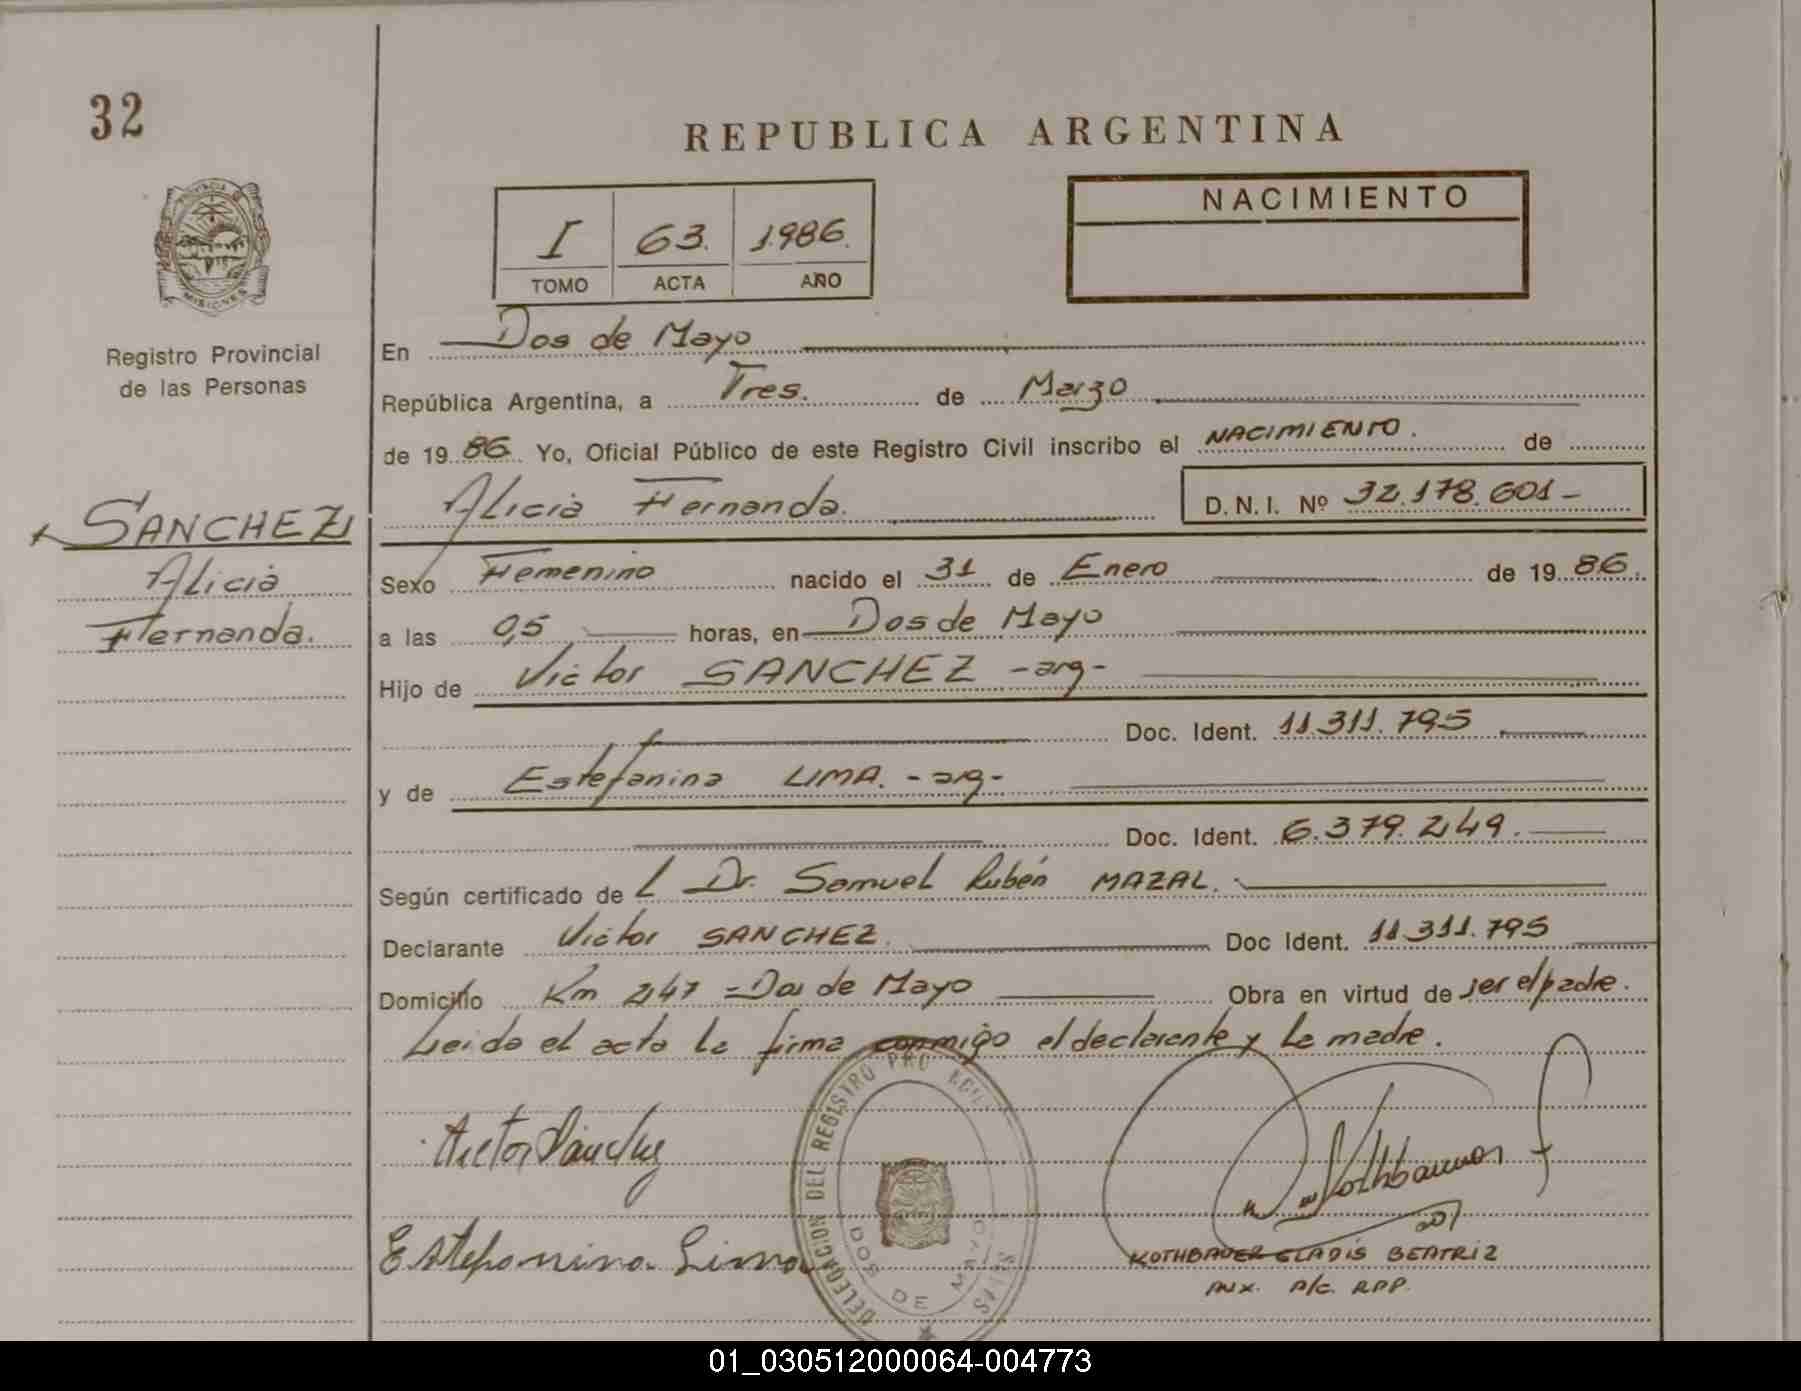 32
REPUBLICA ARGENTINA
NACIMIENTO
I 63. 1.986.
TOMO ACTA AÑO
PROVINCIA
MISIONES
Registro Provincial
de las Personas
SANCHEZ
Alicia
Fernanda.
En Dos de Mayo
República Argentina, a Tres. de Marzo
de 19 86 Yo, Oficial Público de este Registro Civil inscribo el NACIMIENTO. de
Alicia Fernanda. D.N.I. Nº 32.178.601-
Sexo Femenino nacido el 31 de Enero de 19 86.
a las 0,5 horas, en Dos de Mayo
Hijo de Victor SANCHEZ -arg-
Doc. Ident. 11.311.795
y de Estefanina LIMA. -arg-
Doc. Ident. 6.379.249.
Según certificado de L Dr. Samuel Rubén MAZAL.
Declarante Victor SANCHEZ. Doc Ident. 11.311.795
Domicilio Km 247 - Dos de Mayo Obra en virtud de ser el padre.
Leida el acta la firma conmigo el declarante y la madre.
Victor Sánchez
Estefanina Lima
DELEGACION DEL REGISTRO
DOS DE MAYO
Kothbauer
KOTHBAUER GLADIS BEATRIZ
AUX. A/C. RPP.
01_030512000064-004773